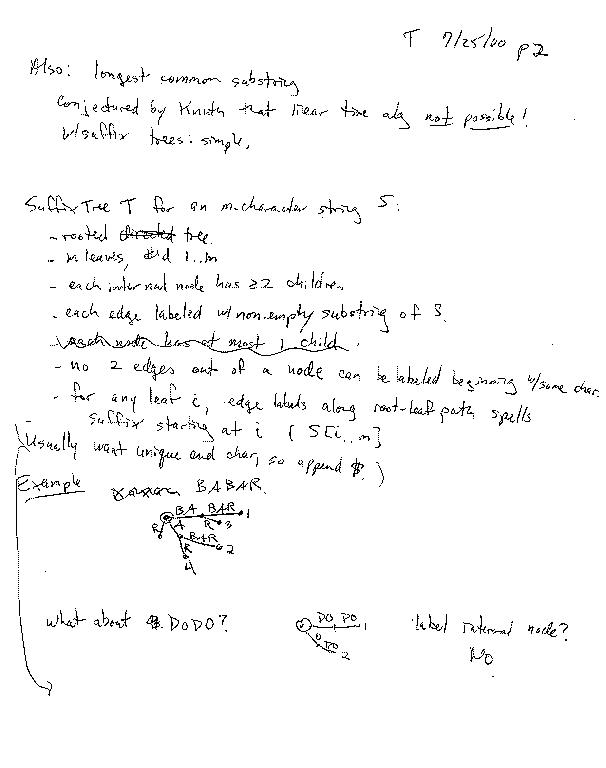 T 7/25/00 p2
Also: longest common substring
conjectured by Knuth that linear time alg not possible!
w/suffix trees: simple,
Suffix Tree T for an m-character string S:
- rooted directed tree
- m leaves, #d 1..m
- each internal node has ≥2 children
- each edge labeled w/ non-empty substring of S.
- each node has at most 1 child.
- no 2 edges out of a node can be labeled beginning w/same char.
- for any leaf i, edge labels along root-leaf path spells
suffix starting at i ( S[i..m]
Usually want unique end char, so append $. )
Example BABAR.
BA BAR 1
R A R 3
BAR 2
R
4
What about DODO?
DO DO 1
O DO 2
label internal node?
No